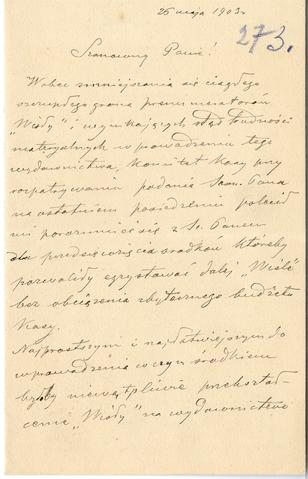 26 maja 1903.
273.
Szanowny Panie!
Wobec zmniejszania się ciągłego
szczupłego grona prenumeratorów
„Wisły" i wynikających stąd trudności
materyalnych w prowadzeniu tego
wydawnictwa, Komitet Kasy przy
rozpatrywaniu podania Szan. Pana
na ostatniem posiedzeniu polecił
mi porozumieć się z Sz. Panem
dla przedsięwzięcia środków któreby
pozwoliły egzystować dalej „Wiśle"
bez obciążenia zbytecznego budżetu
Kasy.
Najprostszym i najłatwiejszym do
wprowadzenia w czyn środkiem
byłby niewątpliwie przekształ-
cenie „Wisły" na wydawnictwo